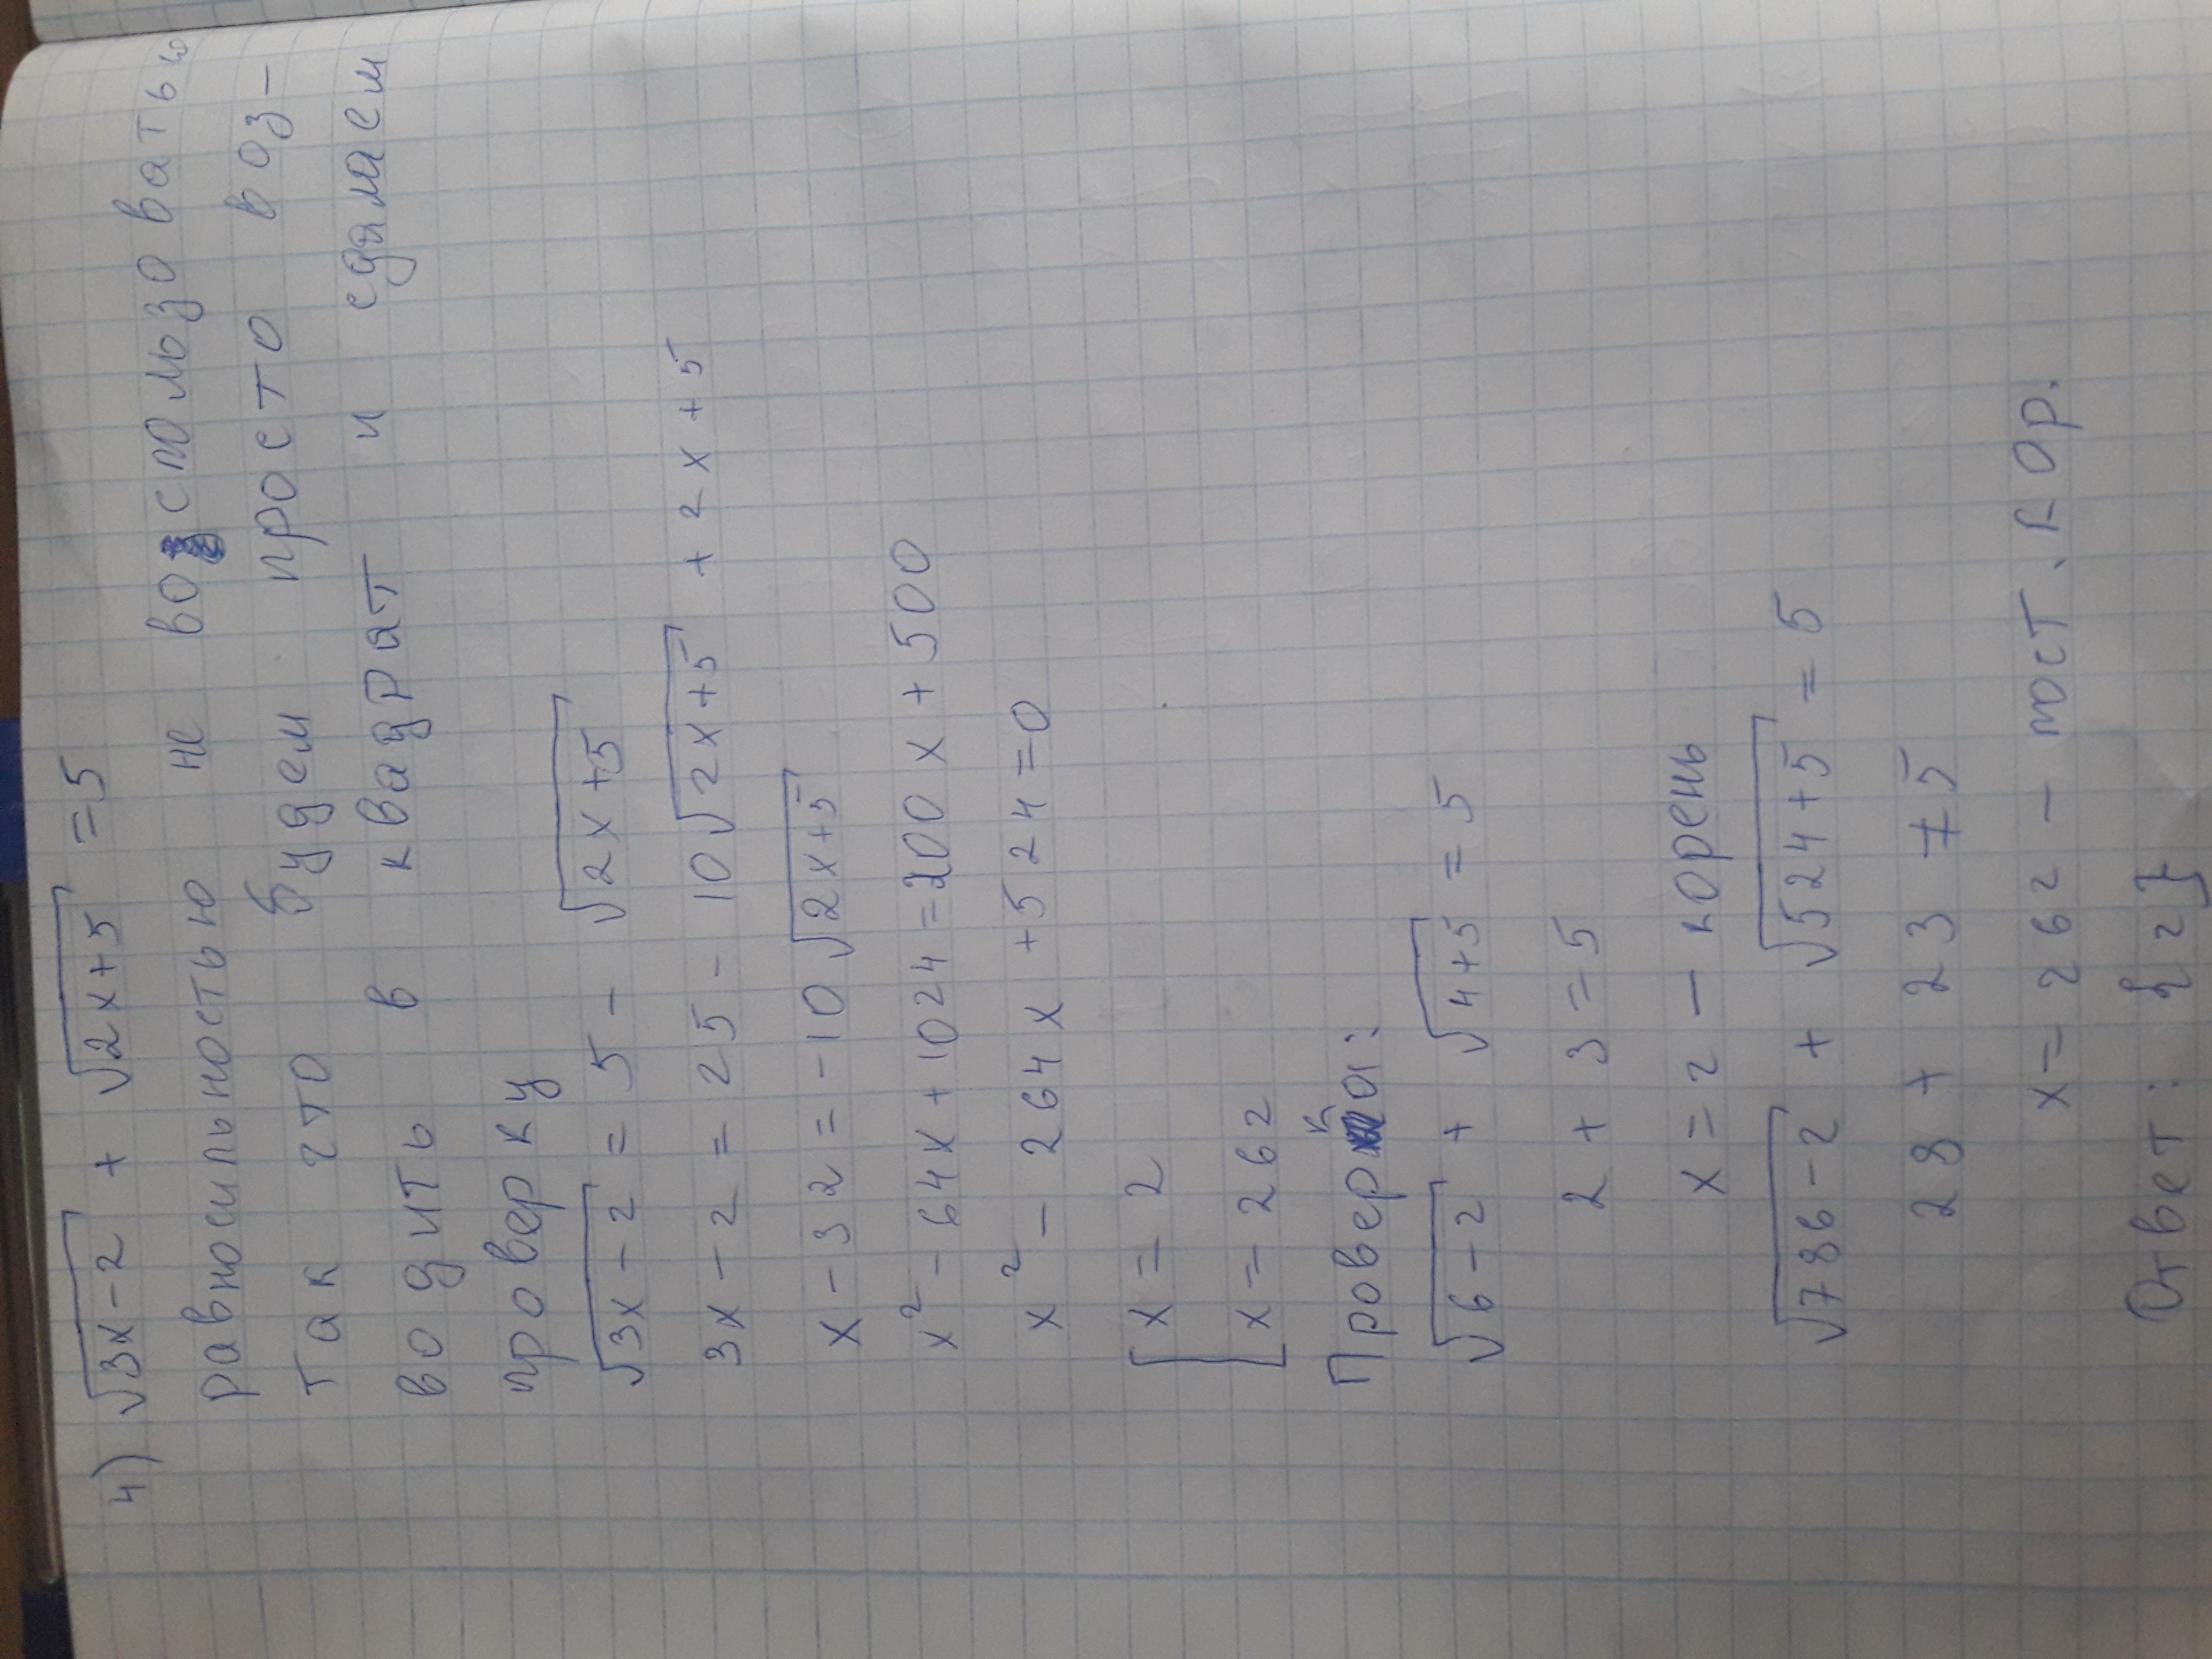 4) √3x-2 + √2x+5 = 5
равносильностью не воспользоваться
так что будем просто воз-
водить в квадрат и сделаем
проверку
√3x-2 = 5 - √2x+5
3x-2 = 25 - 10√2x+5 + 2x+5
x-32 = -10√2x+5
x²-64x+1024=200x+500
x²-264x+524=0
[x=2
[x=262
Проверка:
√6-2 + √4+5 = 5
2+3=5
x=2 - корень
√786-2 + √524+5 = 5
28 + 23 ≠5
x=262 - пост. кор.
Ответ: {2}